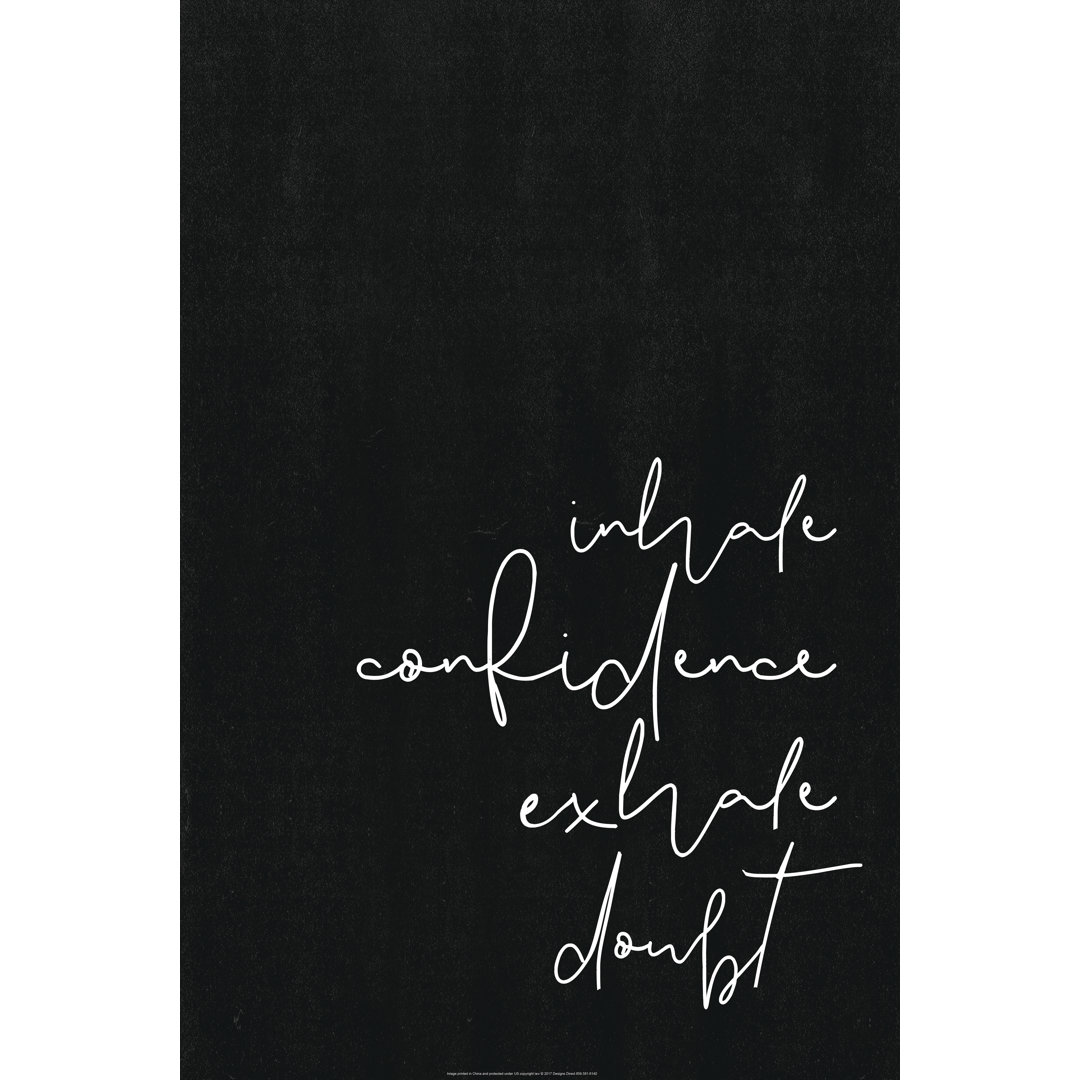 inhale
confidence
exhale
doubt
Image printed in China and protected under US copyright law © 2017 Designs Direct 859.581.6142